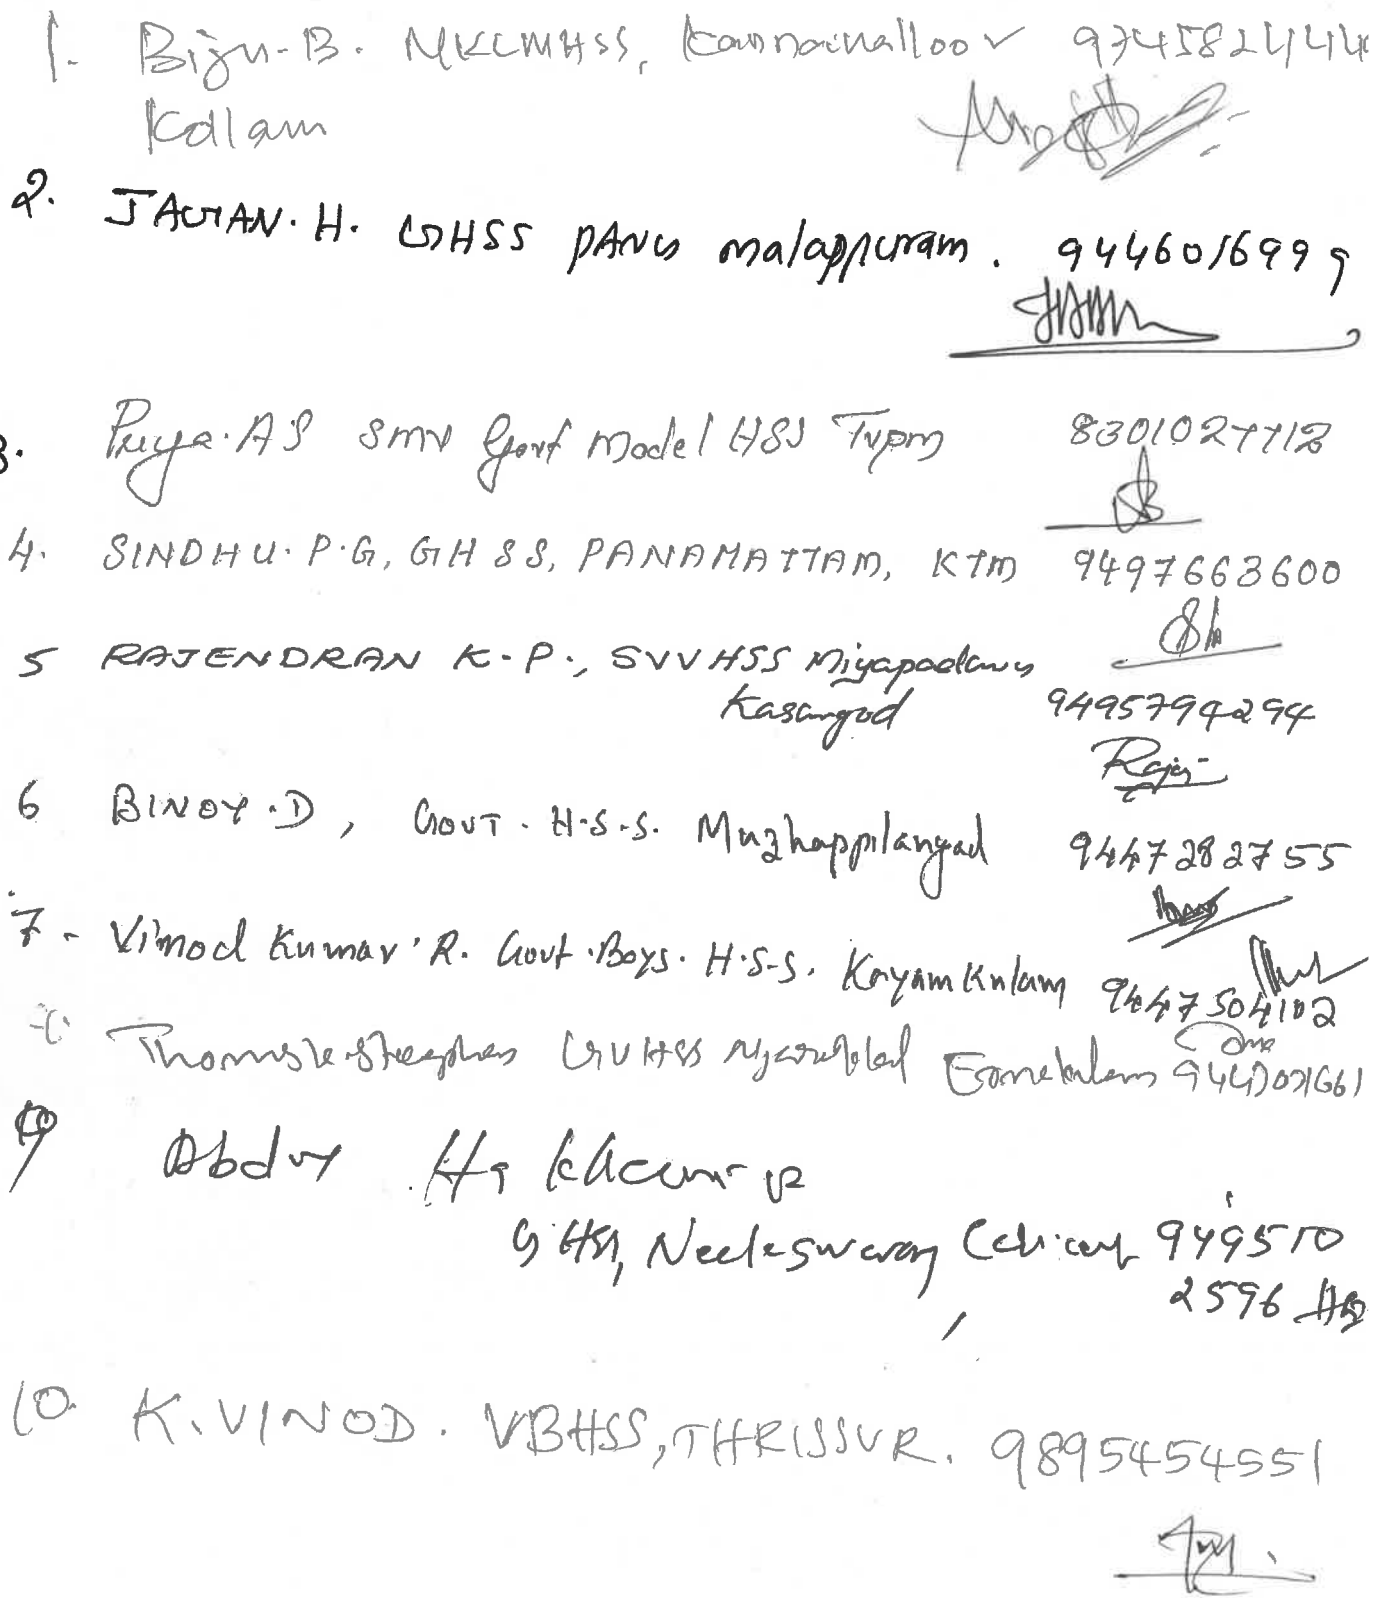 1. Biju. B. MKLMHSS, Kannanalloor 9745824444
Kollam
2. JAGAN. H. GHSS PANG malappuram. 9446016999
3. Priya. A S SMV Govt Model HSS Tvpm 8301027712
4. SINDHU. P.G, GHSS, PANAMATTAM, KTM 9497663600
5 RAJENDRAN K.P., SVVHSS Miyapadavu
Kasargod 9495794294
6 BINOY.D, GOVT. H.S.S. Muzhappilangad 9447282755
7- Vinod Kumar. R. Govt. Boys. H.S.S. Kayamkulam 9447504102
Thomas Stephen GVHSS Ernakulam
9 Abdul
GHSS, Neeleswaram Calicut 949510
2596
10. K. VINOD. VBHSS, THRISSUR. 9895454551